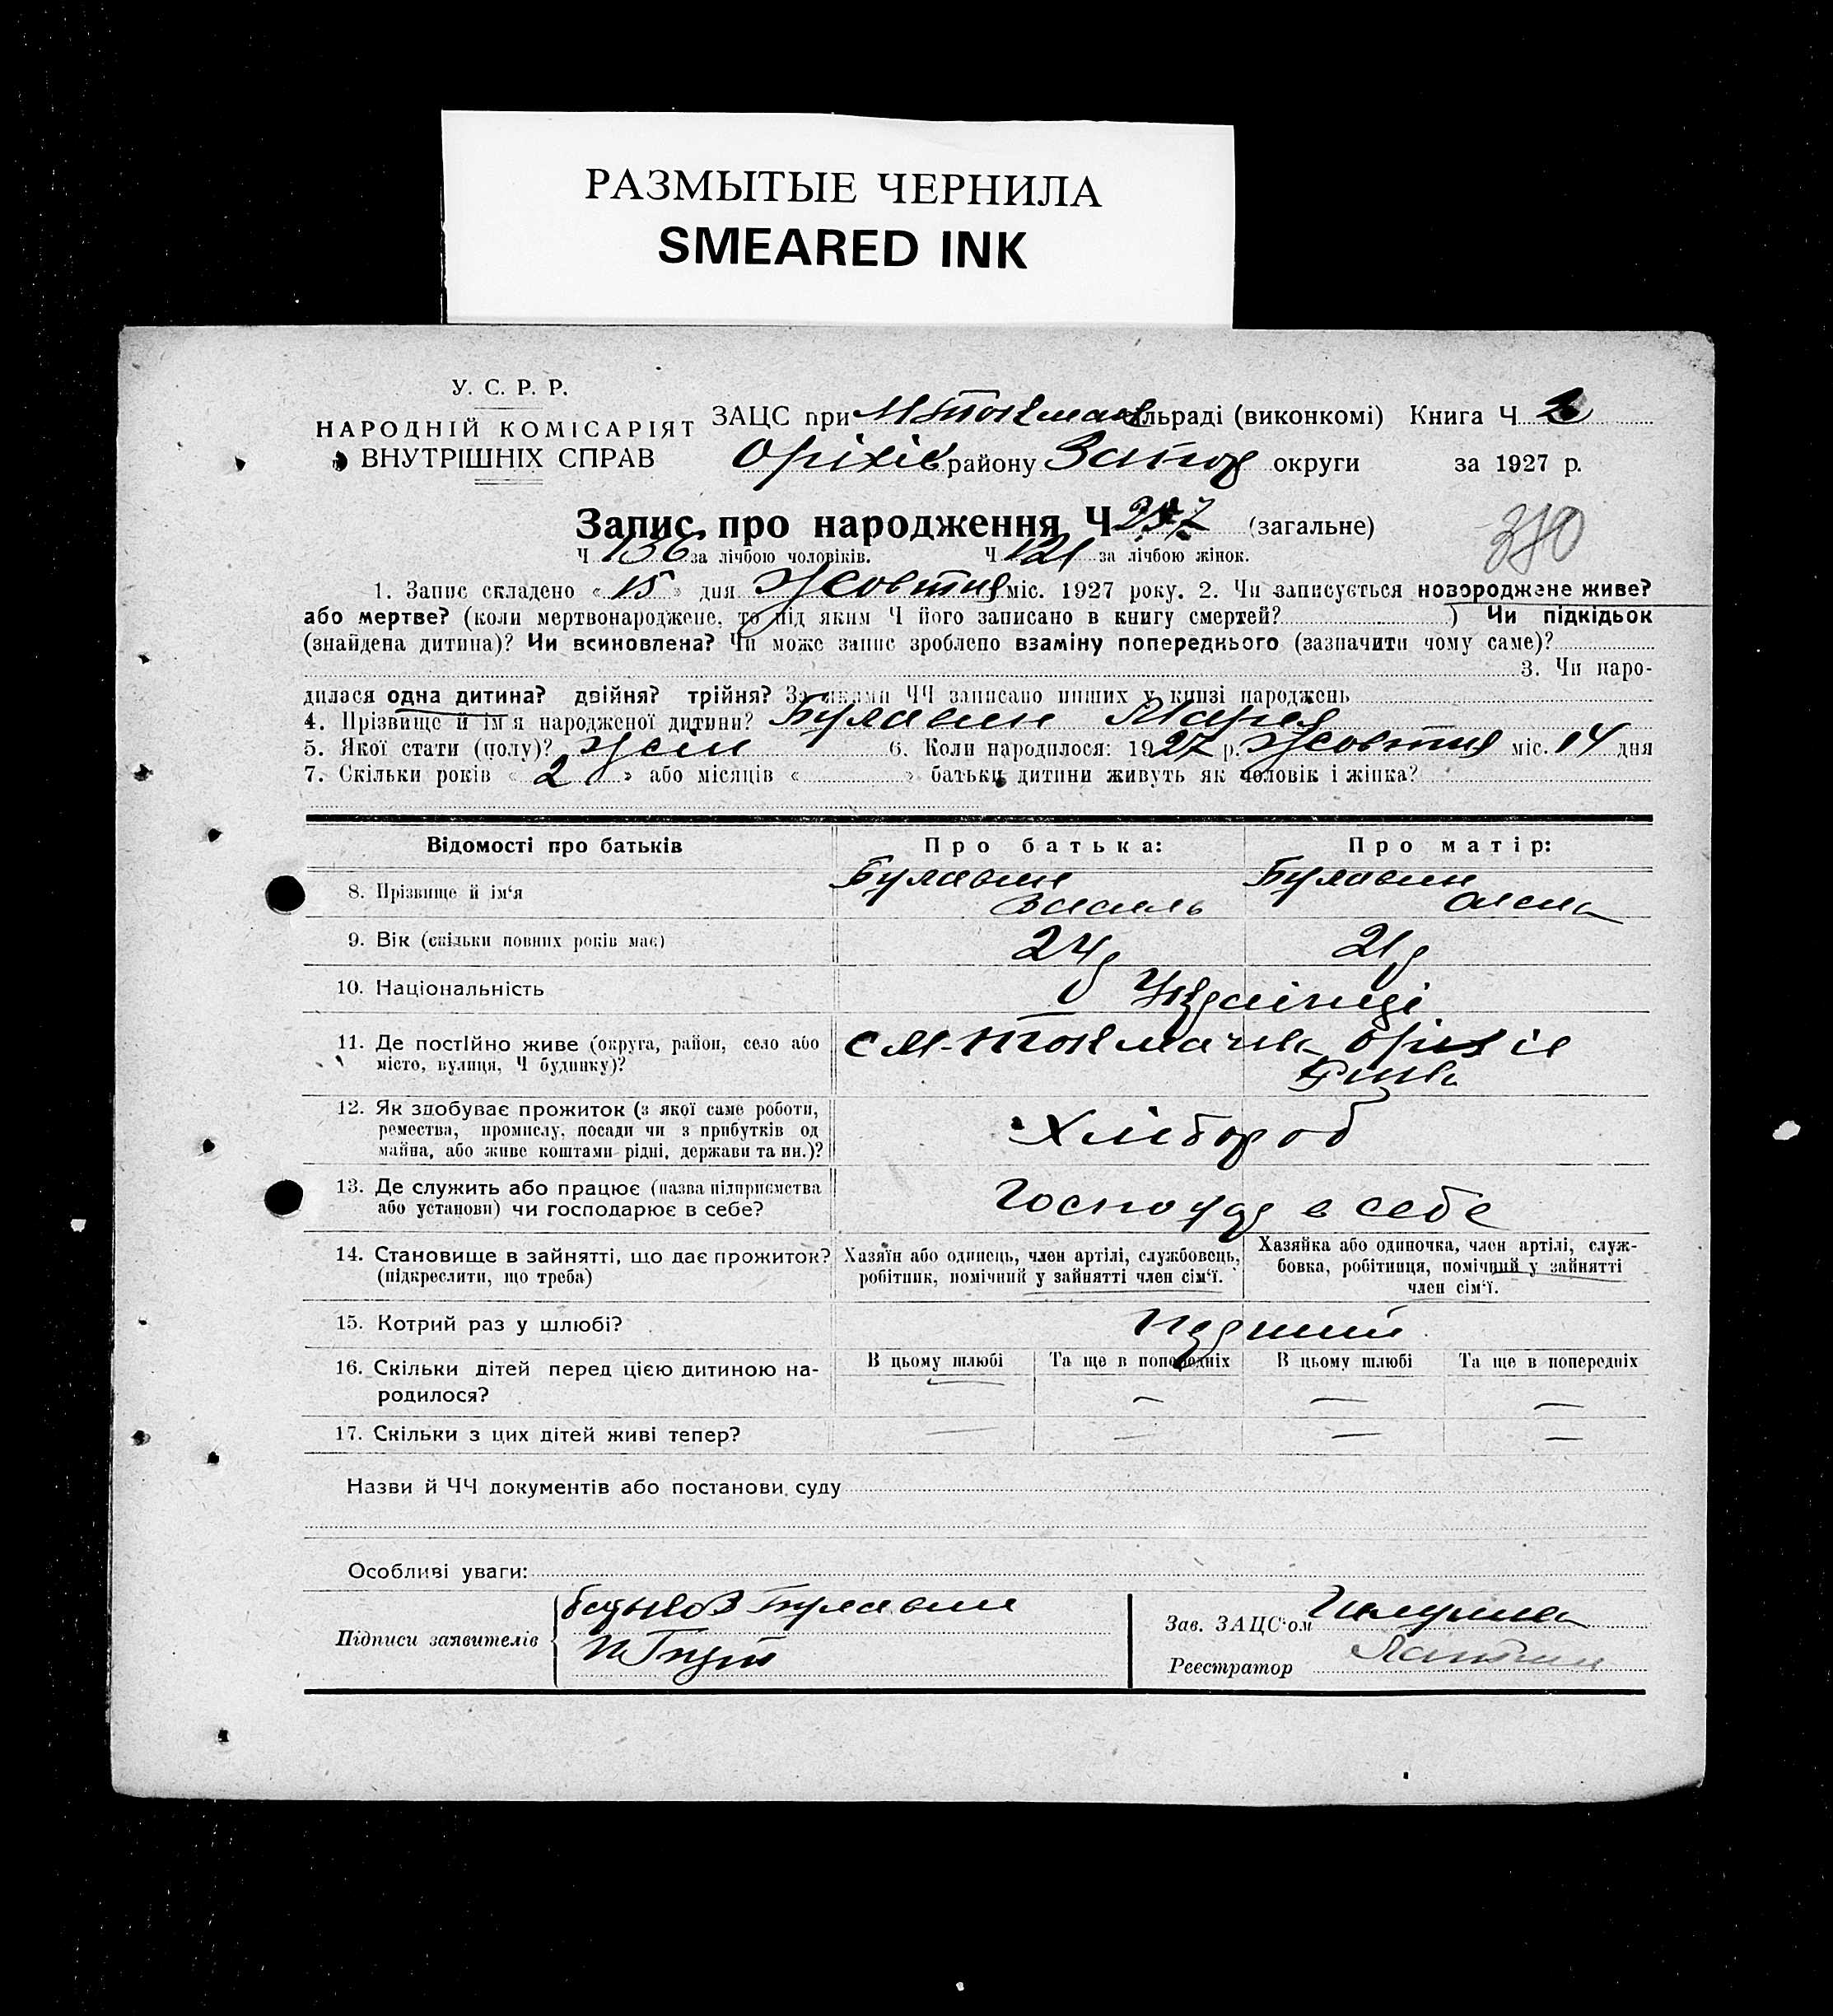 РАЗМЫТЫЕ ЧЕРНИЛА
SMEARED INK
У. С. Р. Р.
НАРОДНІЙ КОМІСАРІЯТ
ВНУТРІШНІХ СПРАВ
ЗАЦС при М Токмач льраді (виконкомі) Книга Ч. 2
Оріхів району Запор округи за 1927 р.
Запис про народження Ч 257 (загальне)
380
Ч 136 за лічбою чоловіків. Ч 121 за лічбою жінок.
1. Запис складено « 15 » дня Жовтня міс. 1927 року. 2. Чи записується новороджене живе?
або мертве? (коли мертвонароджене, то під яким Ч його записано в книгу смертей? ) Чи підкідьок
(знайдена дитина)? Чи всиновлена? Чи може запис зроблено взаміну попереднього (зазначити чому саме)?
3. Чи наро-
дилася одна дитина? двійня? трійня? За якими ЧЧ записано инших у книзі народжень
4. Прізвище й ім'я народженої дитини? Булавин Мария
5. Якої стати (полу)? жін 6. Коли народилося: 1927 р. Жовтня міс. 14 дня
7. Скільки років « 2 » або місяців « » батьки дитини живуть як чоловік і жінка?
Відомості про батьків Про батька: Про матір:
8. Прізвище й ім'я Булавин Василь Булавин Олена
9. Вік (скільки повних років має) 24 р 21 р
10. Національність Українці
11. Де постійно живе (округа, район, село або
місто, вулиця, Ч будинку)? с М-Токмачка Оріхів
12. Як здобуває прожиток (з якої саме роботи,
ремества, промислу, посади чи з прибутків од
майна, або живе коштами рідні, держави та ин.)? Хлібороб
13. Де служить або працює (назва підприємства
або установи) чи господарює в себе? Господар в себе
14. Становище в зайнятті, що дає прожиток?
(підкреслити, що треба)
Хазяїн або одинець, член артілі, службовець,
робітник, помічний у зайнятті член сім'ї.
Хазяйка або одиночка, член артілі, служ-
бовка, робітниця, помічний у зайнятті
член сім'ї.
15. Котрий раз у шлюбі? Перший
16. Скільки дітей перед цією дитиною на-
родилося?
В цьому шлюбі Та ще в попередніх В цьому шлюбі Та ще в попередніх
— — — —
17. Скільки з цих дітей живі тепер? — — — —
Назви й ЧЧ документів або постанови суду
Особливі уваги:
Підписи заявителів Булавин
Зав. ЗАЦС'ом
Реестратор